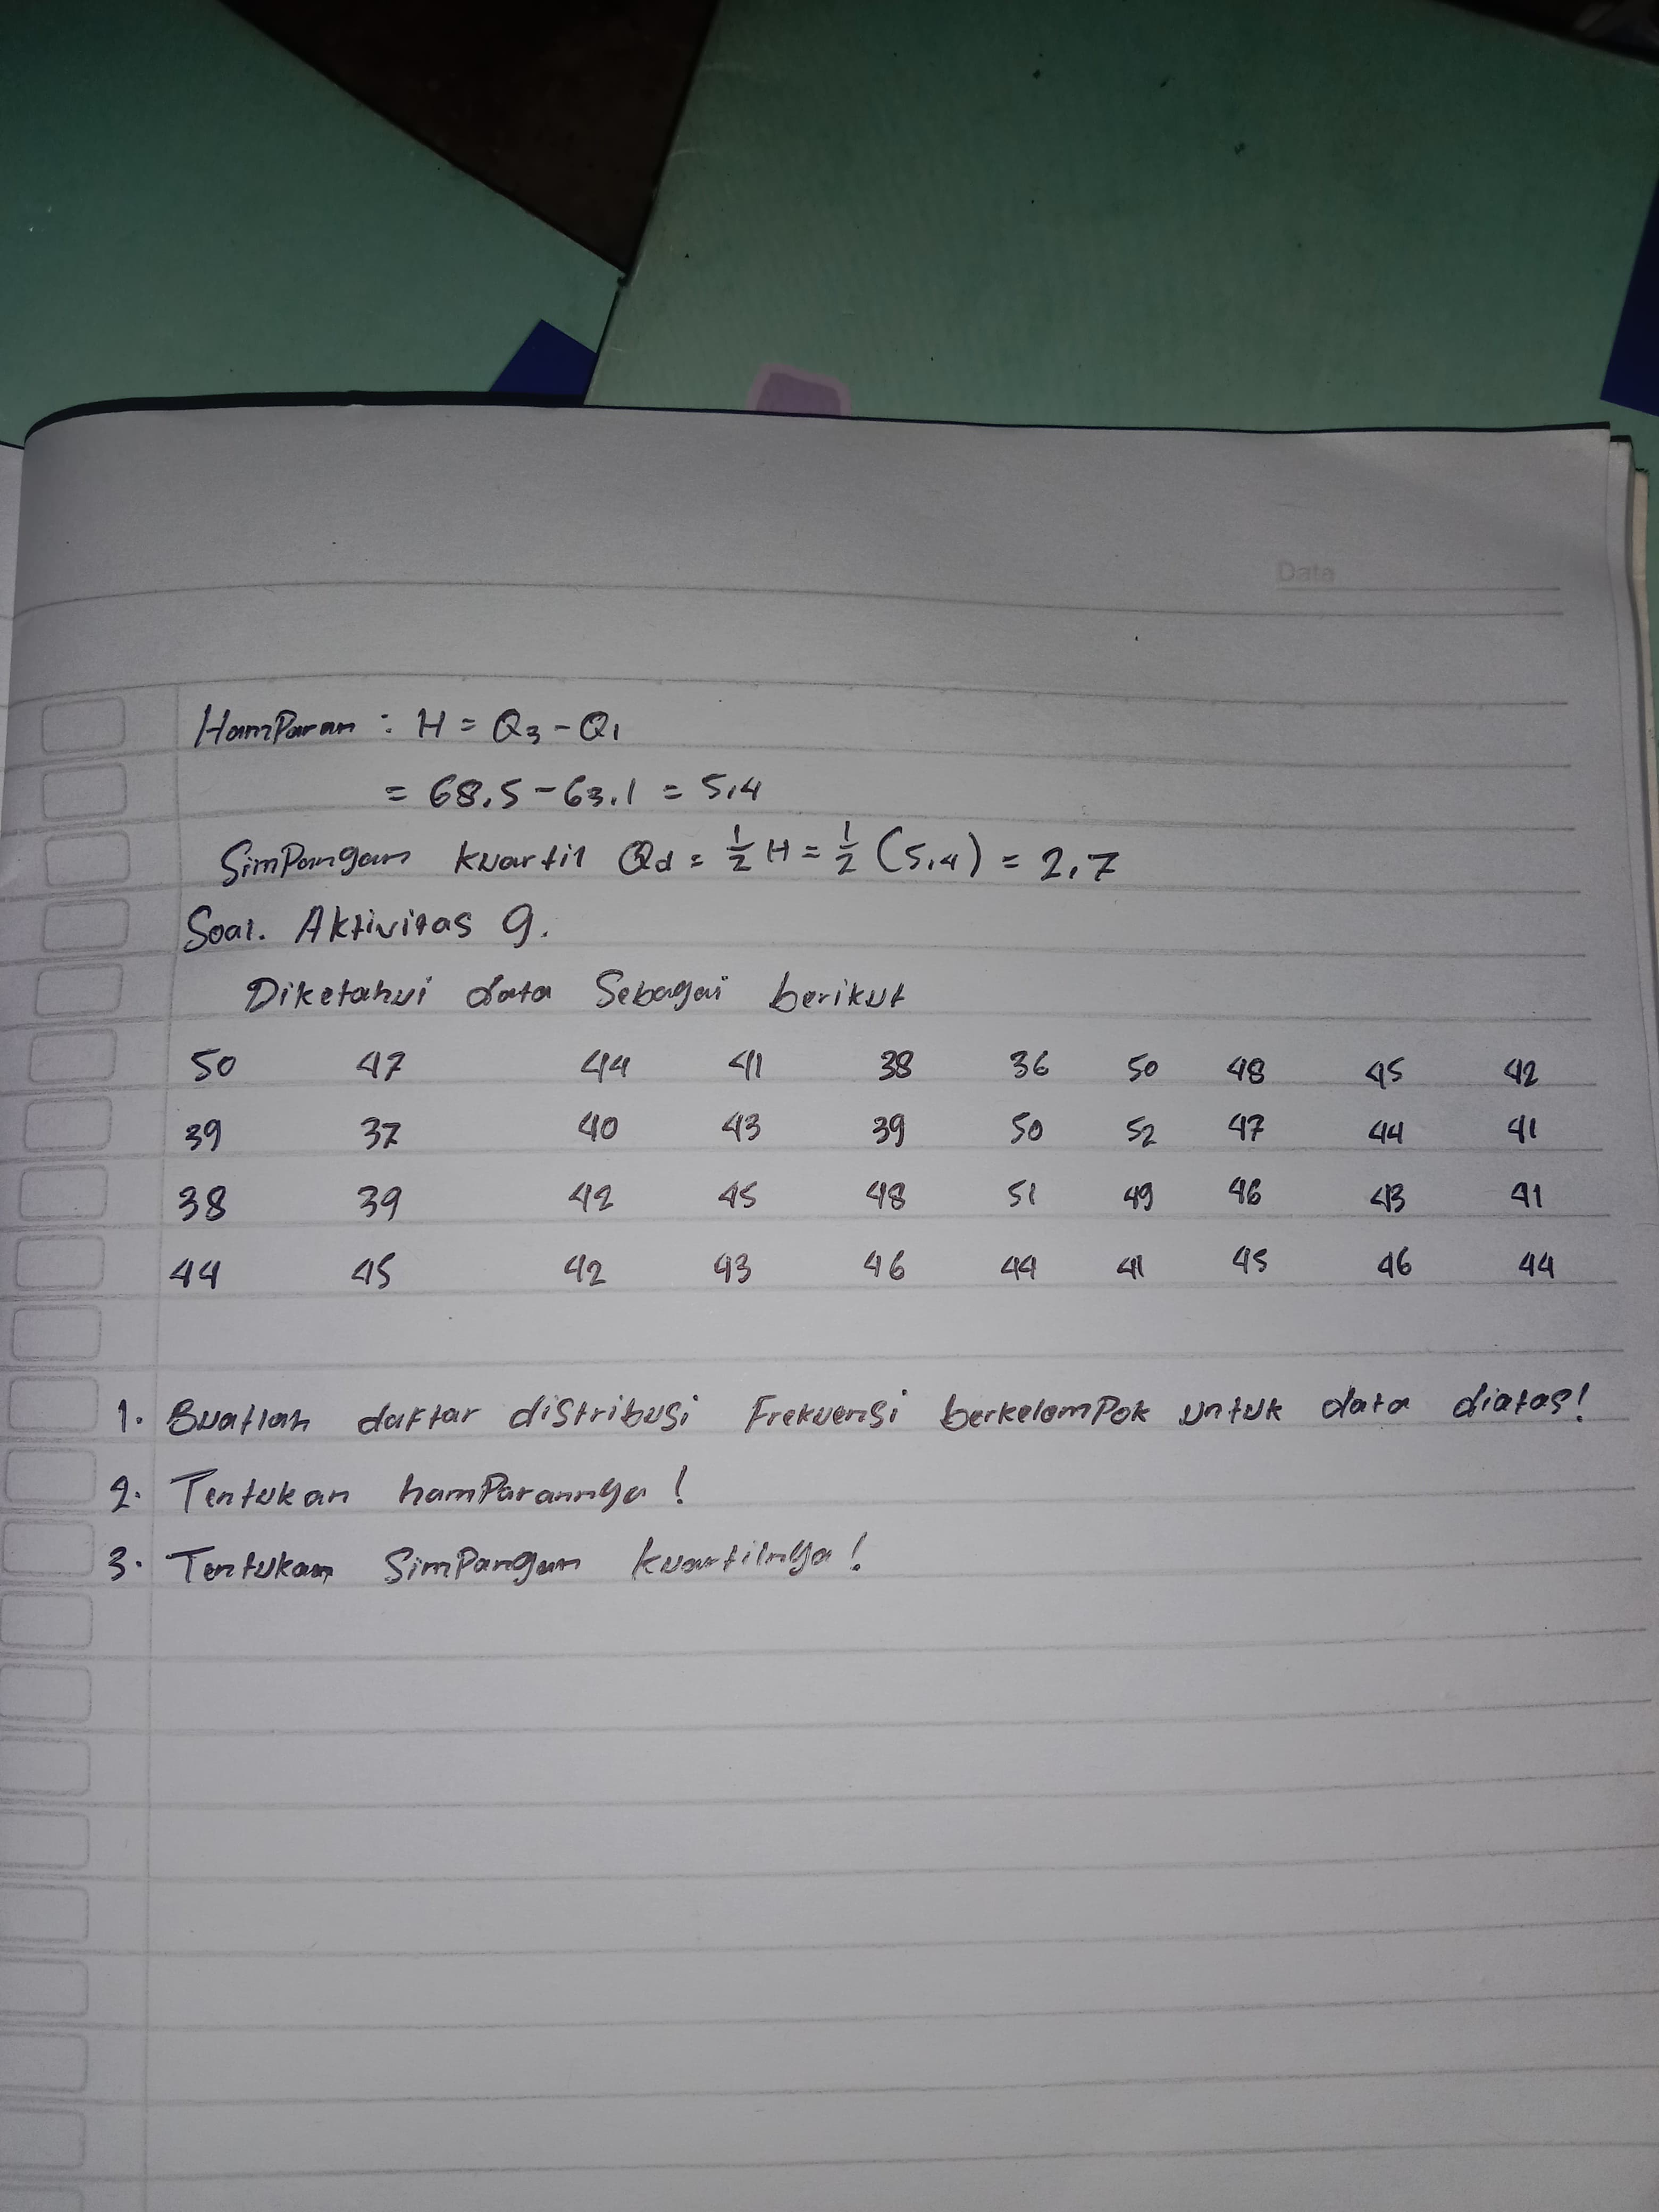 Data
Hamparan : H = Q3 - Q1
= 68,5 - 63,1 = 5,4
Simpangan kuartil Qd = 1/2 H = 1/2 (5,4) = 2,7
Soal. Aktivitas 9.
Diketahui data Sebagai berikut
50 47 44 41 38 36 50 48 45 42
39 37 40 43 39 50 52 47 44 41
38 39 42 45 48 51 49 46 43 41
44 45 42 43 46 44 41 45 46 44
1. Buatlah daftar distribusi Frekuensi berkelompok untuk data diatas!
2. Tentukan hamparannya!
3. Tentukan Simpangan kuartilnya!